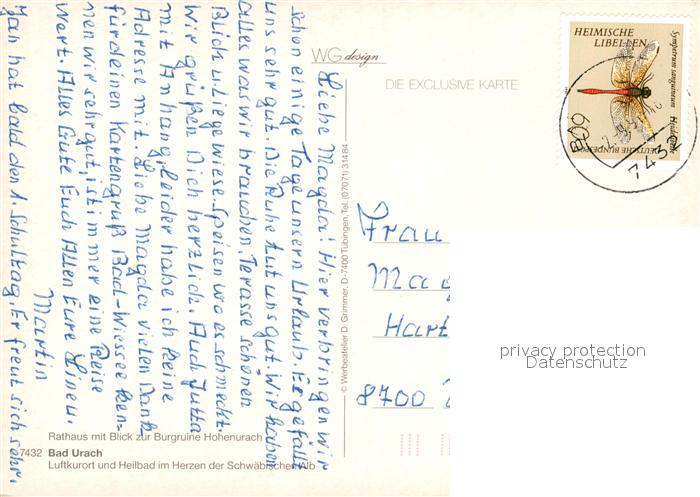 WG design
DIE EXCLUSIVE KARTE
Liebe Magda! Hier verbringen wir
schon einige Tage unsern Urlaub. Es gefällt
uns sehr gut. Die Ruhe tut uns gut. Wir haben
alles was wir brauchen. Terasse schönen
Blick u. Liegewiese. Speisen wo es schmeckt.
Wir grüßen Dich herzlich. Auch Jutta
mit Anhang. leider habe ich keine
Adresse mit. Liebe Magda vielen Dank
für deinen Kartengruß Bad-Wiessee ken-
nen wir sehr gut, ist immer eine Reise
Wert. Alles Gute Euch Allen Eure
Martin
Jan hat bald den 1. Schultag. Er freut sich sehr.
© Werbeatelier D. Grimmer, D-7400 Tübingen, Tel. (07071) 31484
HEIMISCHE
LIBELLEN
Sympetrum sanguineum
DEUTSCHE BUNDESPOST
743
Frau
Ma
Hart
8700
privacy protection
Datenschutz
Rathaus mit Blick zur Burgruine Hohenurach
7432 Bad Urach
Luftkurort und Heilbad im Herzen der Schwäbischen Alb